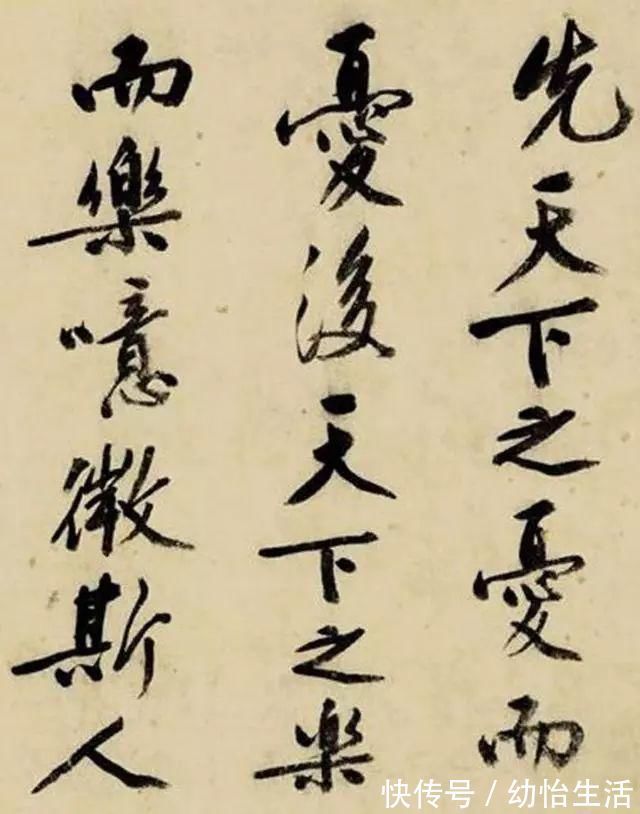 先天下之憂而
憂後天下之楽
而樂噫微斯人
快传号/幼怡生活